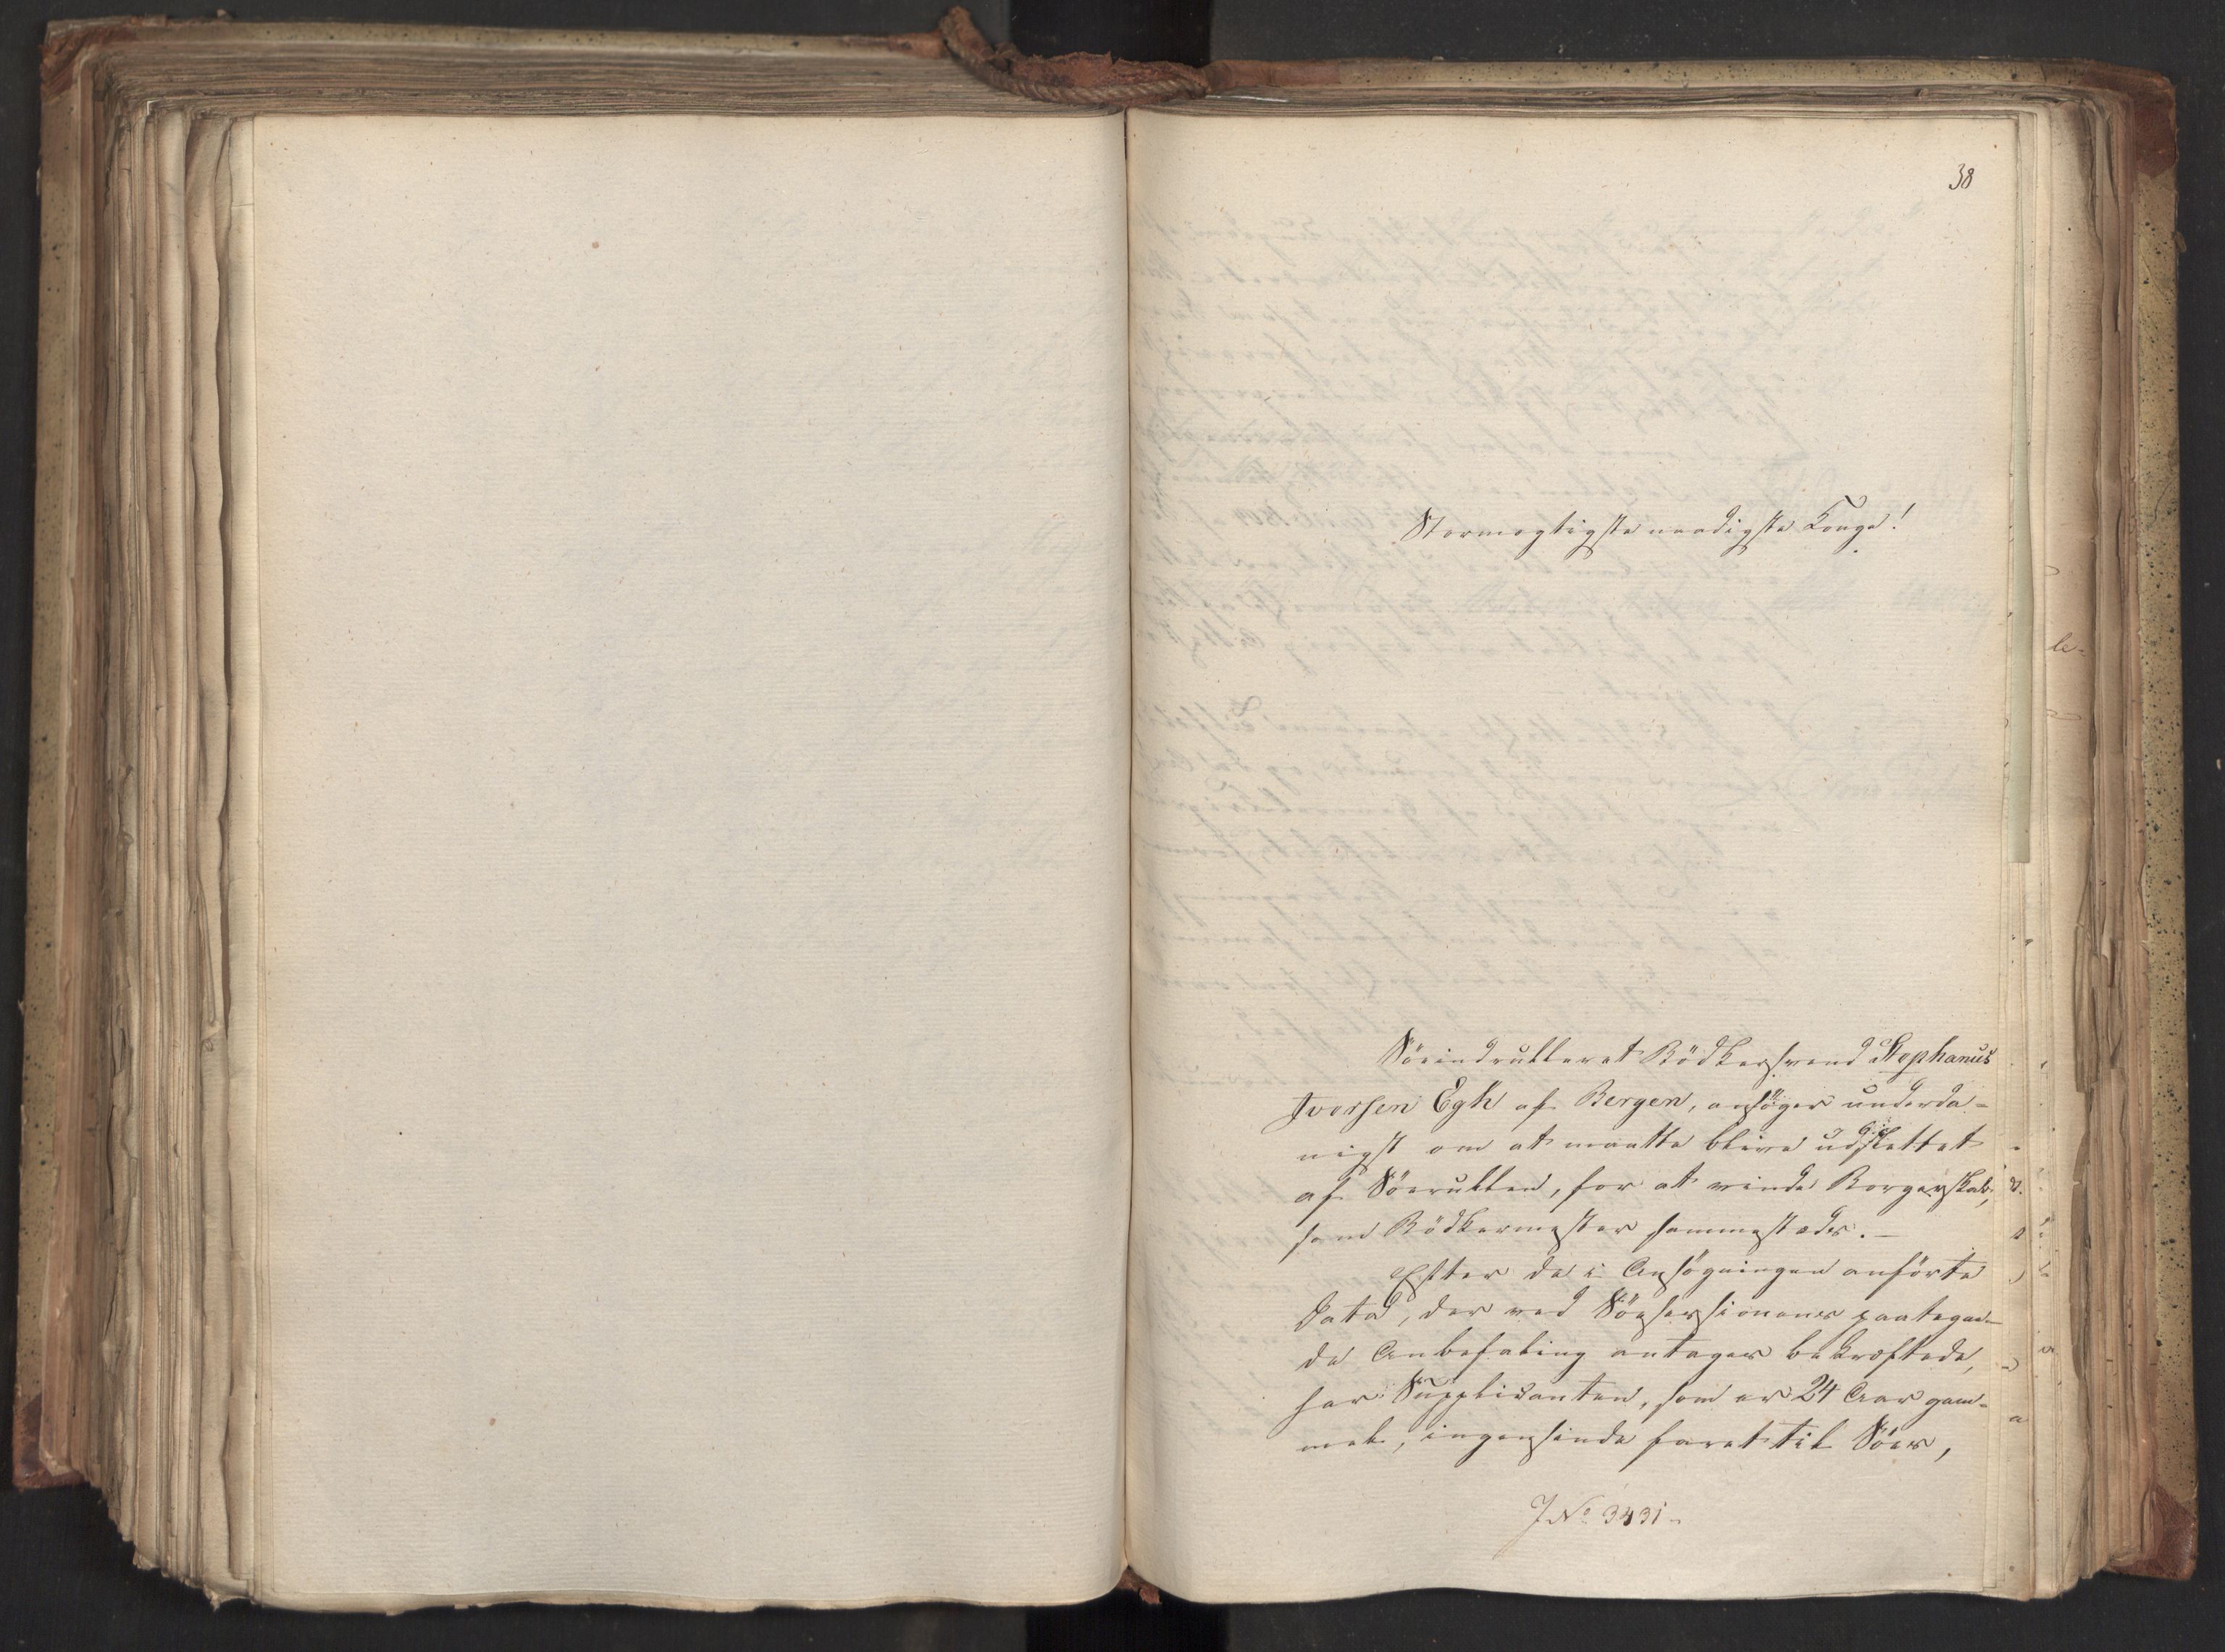 38
Stormægtigste naadigste Konge!
Söeindrulleret Bödkersvend Stephanus
Iversen Egh af Bergen, ansöger underda-
nigst om at maatte blive udslettet
af Söerullen, for at vinde Borgerskab,
som Bödkermester sammestæds. –
Efter de i Ansögningen anförte
Data, der ved Söesessionens paategne-
de Anbefaling antages bekræftede,
har Supplicanten, som er 24 Aar gam-
mel, ingensinde faret til Söes,
J No 3431 –